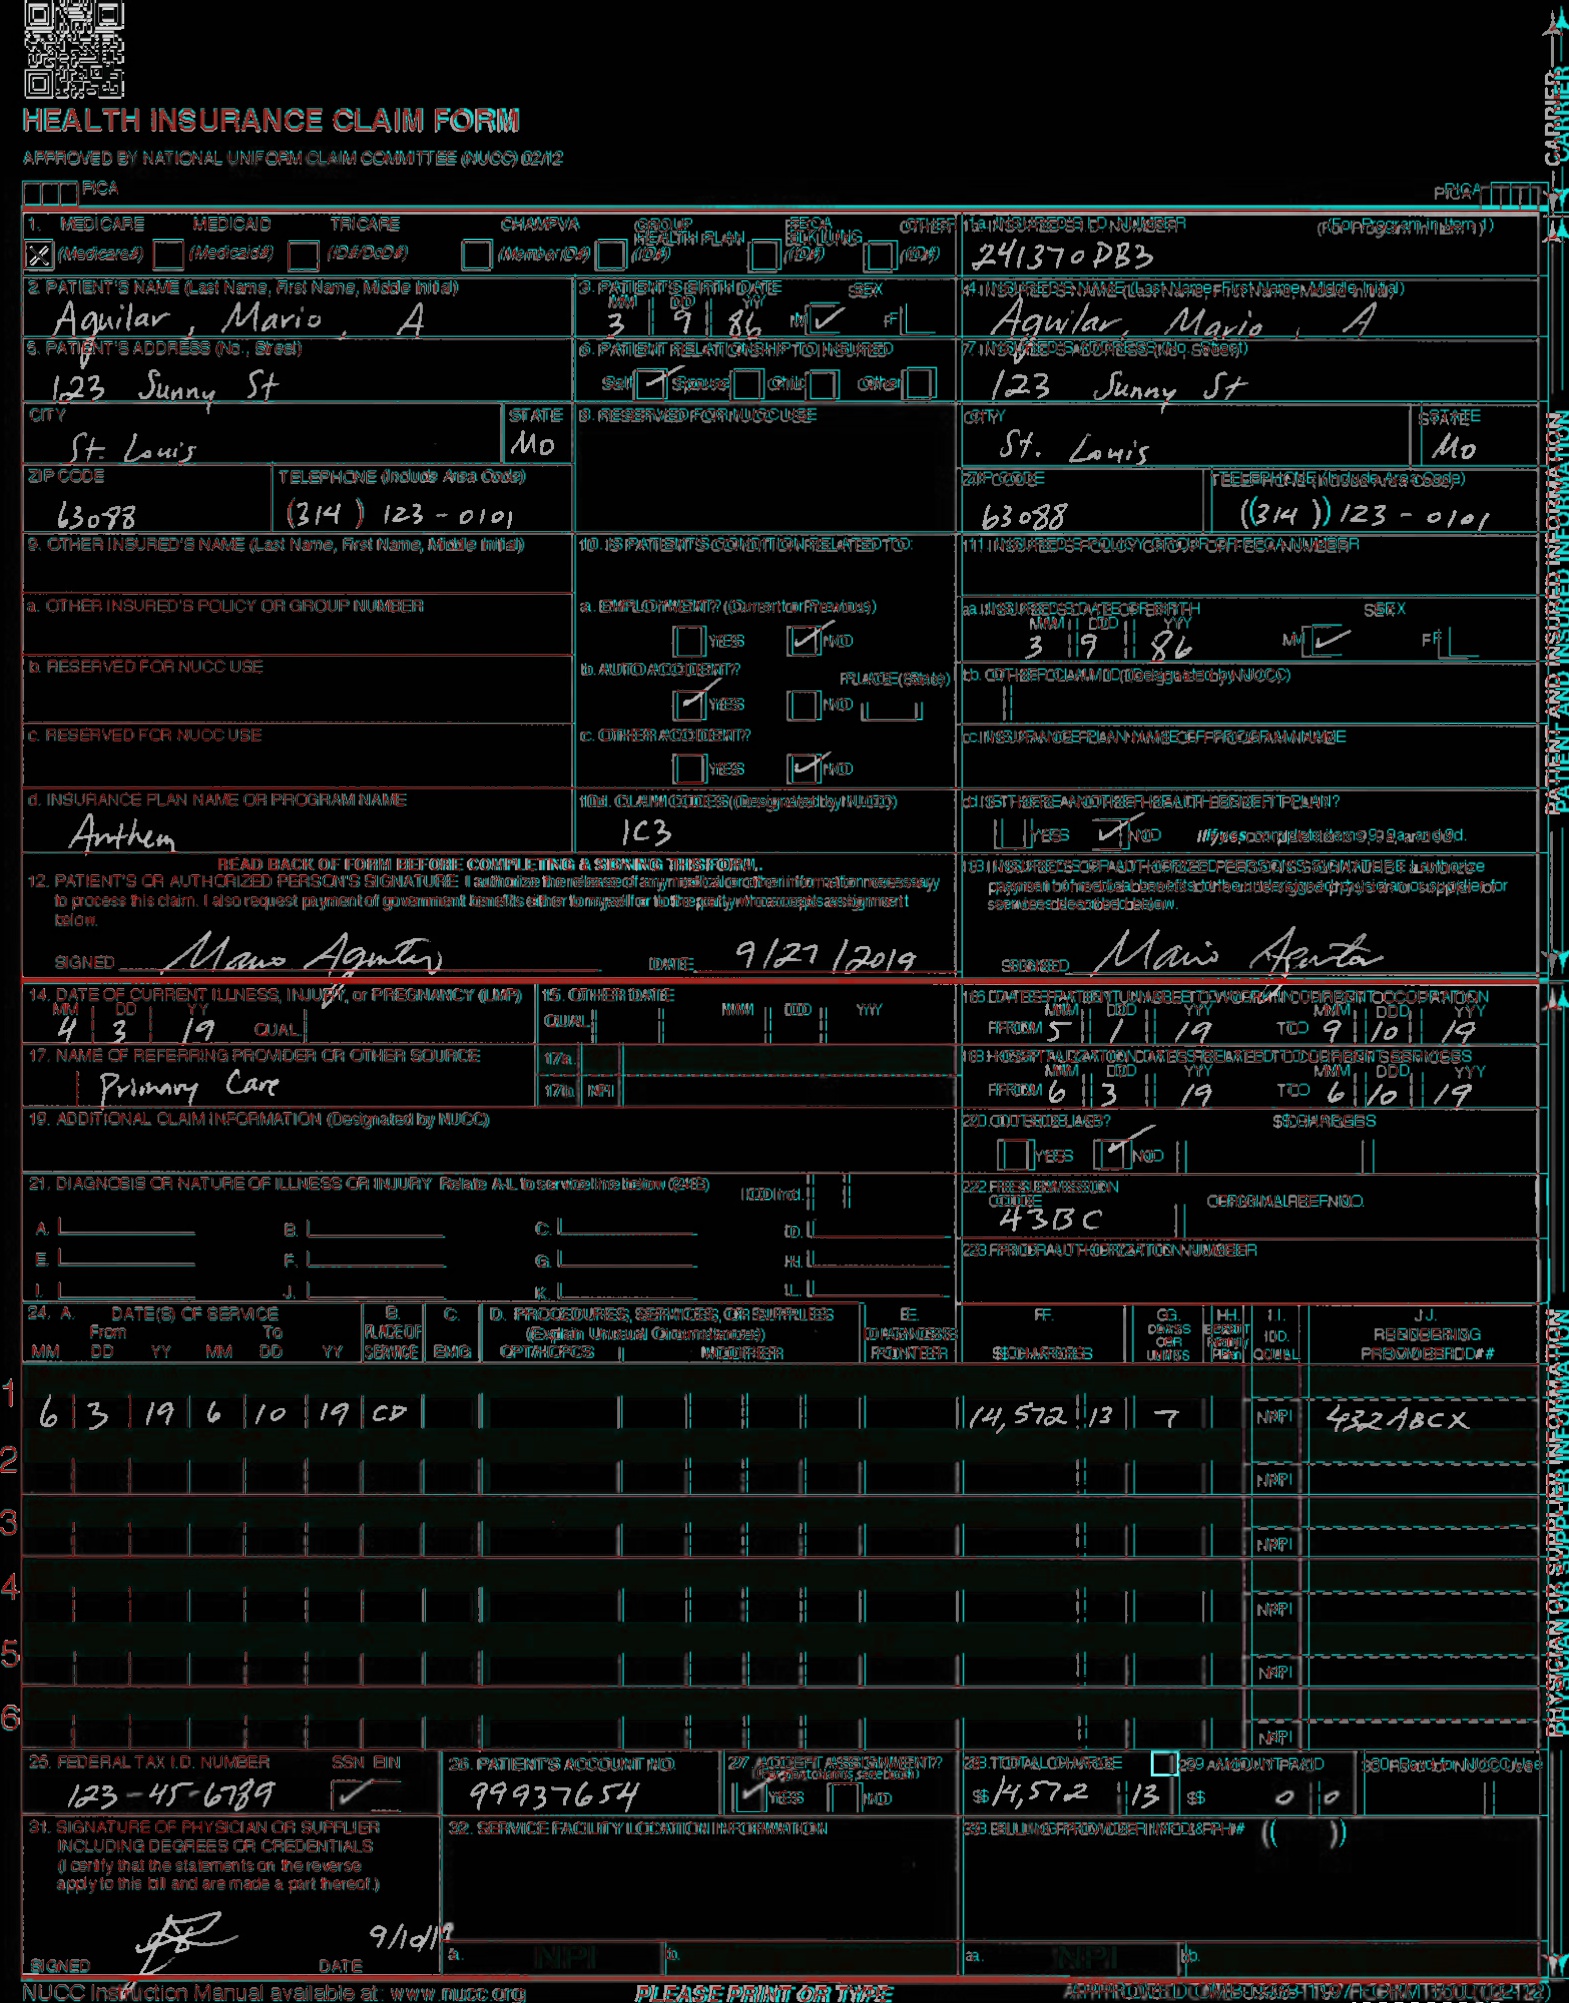 HEALTH INSURANCE CLAIM FORM
APPROVED BY NATIONAL UNIFORM CLAIM COMMITTEE (NUCC) 02/12
PICA
PICA
CARRIER
1. MEDICARE MEDICAID TRICARE CHAMPVA GROUP HEALTH PLAN FECA BLK LUNG OTHER
(Medicare#) (Medicaid#) (ID#/DoD#) (Member ID#) (ID#) (ID#) (ID#)
1a. INSURED'S I.D. NUMBER (For Program in Item 1)
241370PB3
2. PATIENT'S NAME (Last Name, First Name, Middle Initial)
Aguilar, Mario, A
3. PATIENT'S BIRTH DATE SEX
MM DD YY
3 9 86 M F
4. INSURED'S NAME (Last Name, First Name, Middle Initial)
Aguilar, Mario, A
5. PATIENT'S ADDRESS (No., Street)
123 Sunny St
6. PATIENT RELATIONSHIP TO INSURED
Self Spouse Child Other
7. INSURED'S ADDRESS (No., Street)
123 Sunny St
CITY STATE
St. Louis MO
8. RESERVED FOR NUCC USE
CITY STATE
St. Louis MO
ZIP CODE TELEPHONE (Include Area Code)
63088 (314) 123-0101
ZIP CODE TELEPHONE (Include Area Code)
63088 (314) 123-0101
9. OTHER INSURED'S NAME (Last Name, First Name, Middle Initial)
10. IS PATIENT'S CONDITION RELATED TO:
11. INSURED'S POLICY GROUP OR FECA NUMBER
a. OTHER INSURED'S POLICY OR GROUP NUMBER
a. EMPLOYMENT? (Current or Previous)
YES NO
a. INSURED'S DATE OF BIRTH SEX
MM DD YY
3 9 86 M F
b. RESERVED FOR NUCC USE
b. AUTO ACCIDENT? PLACE (State)
YES NO
b. OTHER CLAIM ID (Designated by NUCC)
c. RESERVED FOR NUCC USE
c. OTHER ACCIDENT?
YES NO
c. INSURANCE PLAN NAME OR PROGRAM NAME
d. INSURANCE PLAN NAME OR PROGRAM NAME
Anthem
10d. CLAIM CODES (Designated by NUCC)
1C3
d. IS THERE ANOTHER HEALTH BENEFIT PLAN?
YES NO If yes, complete items 9, 9a, and 9d.
READ BACK OF FORM BEFORE COMPLETING & SIGNING THIS FORM.
12. PATIENT'S OR AUTHORIZED PERSON'S SIGNATURE I authorize the release of any medical or other information necessary
to process this claim. I also request payment of government benefits either to myself or to the party who accepts assignment
below.
SIGNED Mario Aguilar DATE 9/27/2019
13. INSURED'S OR AUTHORIZED PERSON'S SIGNATURE I authorize
payment of medical benefits to the undersigned physician or supplier for
services described below.
SIGNED Mario Aguilar
PATIENT AND INSURED INFORMATION
14. DATE OF CURRENT ILLNESS, INJURY, or PREGNANCY (LMP)
MM DD YY
4 3 19 QUAL.
15. OTHER DATE
QUAL. MM DD YY
16. DATES PATIENT UNABLE TO WORK IN CURRENT OCCUPATION
MM DD YY MM DD YY
FROM 5 1 19 TO 9 10 19
17. NAME OF REFERRING PROVIDER OR OTHER SOURCE
Primary Care
17a.
17b. NPI
18. HOSPITALIZATION DATES RELATED TO CURRENT SERVICES
MM DD YY MM DD YY
FROM 6 3 19 TO 6 10 19
19. ADDITIONAL CLAIM INFORMATION (Designated by NUCC)
20. OUTSIDE LAB? $ CHARGES
YES NO
21. DIAGNOSIS OR NATURE OF ILLNESS OR INJURY Relate A-L to service line below (24E)
ICD Ind.
A. B. C. D.
E. F. G. H.
I. J. K. L.
22. RESUBMISSION
CODE ORIGINAL REF. NO.
43BC
23. PRIOR AUTHORIZATION NUMBER
24. A. DATE(S) OF SERVICE B. C. D. PROCEDURES, SERVICES, OR SUPPLIES E. F. G. H. I. J.
From To PLACE OF (Explain Unusual Circumstances) DIAGNOSIS DAYS OR UNITS EPSDT Family Plan ID. RENDERING
MM DD YY MM DD YY SERVICE EMG CPT/HCPCS MODIFIER POINTER $ CHARGES QUAL. PROVIDER ID. #
1 6 3 19 6 10 19 CD 14,572 13 7 NPI 432ABCX
2 NPI
3 NPI
4 NPI
5 NPI
6 NPI
25. FEDERAL TAX I.D. NUMBER SSN EIN
123-45-6789
26. PATIENT'S ACCOUNT NO.
99937654
27. ACCEPT ASSIGNMENT?
(For govt. claims, see back)
YES NO
28. TOTAL CHARGE
$ 14,572 13
29. AMOUNT PAID
$ 0 0
30. Rsvd for NUCC Use
31. SIGNATURE OF PHYSICIAN OR SUPPLIER
INCLUDING DEGREES OR CREDENTIALS
(I certify that the statements on the reverse
apply to this bill and are made a part thereof.)
9/10/19
SIGNED DATE
32. SERVICE FACILITY LOCATION INFORMATION
a. NPI b.
33. BILLING PROVIDER INFO & PH # ( )
a. NPI b.
PHYSICIAN OR SUPPLIER INFORMATION
NUCC Instruction Manual available at: www.nucc.org
PLEASE PRINT OR TYPE